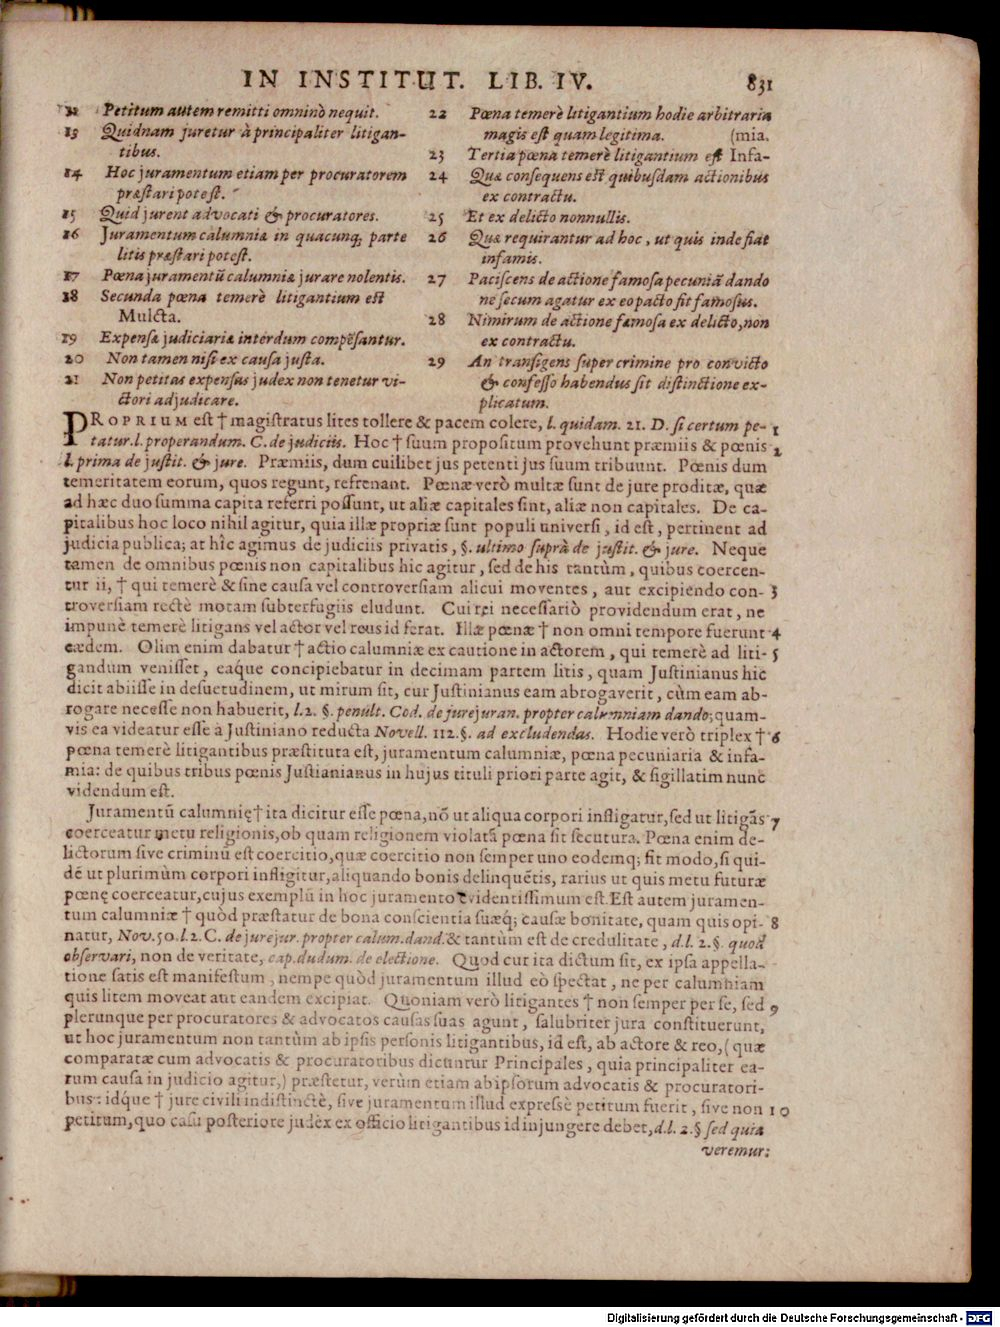 IN INSTITUT. LIB. IV. 831
12 Petitum autem remitti omninò nequit.
13 Quidnam juretur à principaliter litigan-
tibus.
14 Hoc juramentum etiam per procuratorem
præstari potest.
15 Quid jurent advocati & procuratores.
16 Juramentum calumniæ in quacunq; parte
litis præstari potest.
17 Pœna juramentũ calumniæ jurare nolentis.
18 Secunda pœna temerè litigantium est
Mulcta.
19 Expensæ judiciariæ interdum compẽsantur.
20 Non tamen nisi ex causa justa.
21 Non petitas expensas judex non tenetur vi-
ctori adjudicare.
22 Pœna temerè litigantium hodie arbitraria
magis est quam legitima. (mia.
23 Tertia pœna temerè litigantium est Infa-
24 Quæ consequens est quibusdam actionibus
ex contractu.
25 Et ex delicto nonnullis.
26 Quæ requirantur ad hoc, ut quis inde fiat
infamis.
27 Paciscens de actione famosa pecuniã dando
ne secum agatur ex eo pacto fit famosus.
28 Nimirum de actione famosa ex delicto, non
ex contractu.
29 An transigens super crimine pro convicto
& confesso habendus sit distinctione ex-
plicatum.
PROPRIUM est † magistratus lites tollere & pacem colere, l. quidam. 21. D. si certum pe- 1
tatur. l. properandum. C. de judiciis. Hoc † suum propositum provehunt præmiis & pœnis 2
l. prima de justit. & jure. Præmiis, dum cuilibet jus petenti jus suum tribuunt. Pœnis dum
temeritatem eorum, quos regunt, refrenant. Pœnæ verò multæ sunt de jure proditæ, quæ
ad hæc duo summa capita referri possunt, ut aliæ capitales sint, aliæ non capitales. De ca-
pitalibus hoc loco nihil agitur, quia illæ propriæ sunt populi universi, id est, pertinent ad
judicia publica; at hîc agimus de judiciis privatis, §. ultimo suprà de justit. & jure. Neque
tamen de omnibus pœnis non capitalibus hic agitur, sed de his tantùm, quibus coercen-
tur ii, † qui temerè & sine causa vel controversiam alicui moventes, aut excipiendo con- 3
troversiam rectè motam subterfugiis eludunt. Cui rei necessariò providendum erat, ne
impunè temerè litigans vel actor vel reus id ferat. Illæ pœnæ † non omni tempore fuerunt 4
eædem. Olim enim dabatur † actio calumniæ ex cautione in actorem, qui temerè ad liti- 5
gandum venisset, eaque concipiebatur in decimam partem litis, quam Justinianus hic
dicit abiisse in desuetudinem, ut mirum sit, cur Justinianus eam abrogaverit, cùm eam ab-
rogare necesse non habuerit, l. 2. §. penult. Cod. de jurejuran. propter calumniam dando; quam-
vis ea videatur esse à Justiniano reducta Novell. 112. §. ad excludendas. Hodie verò triplex † 6
pœna temerè litigantibus præstituta est, juramentum calumniæ, pœna pecuniaria & infa-
mia: de quibus tribus pœnis Justianianus in hujus tituli priori parte agit, & sigillatim nunc
videndum est.
Juramentũ calumnię † ita dicitur esse pœna, nõ ut aliqua corpori infligatur, sed ut litigãs 7
coerceatur metu religionis, ob quam religionem violatã pœna sit secutura. Pœna enim de-
lictorum sive criminũ est coercitio, quæ coercitio non semper uno eodemq; fit modo, si qui-
dẽ ut plurimùm corpori infligitur, aliquando bonis delinquẽtis, rarius ut quis metu futuræ
pœnę coerceatur, cujus exemplũ in hoc juramento evidentissimum est. Est autem juramen-
tum calumniæ † quòd præstatur de bona conscientia suæq́; causæ bonitate, quam quis opi- 8
natur, Nov. 50. l. 2. C. de jurejur. propter calum. dand. & tantùm est de credulitate, d. l. 2. §. quod
observari, non de veritate, cap. dudum. de electione. Quod cur ita dictum sit, ex ipsa appella-
tione satis est manifestum, nempe quòd juramentum illud eò spectat, ne per calumniam
quis litem moveat aut eandem excipiat. Quoniam verò litigantes † non semper per se, sed 9
plerunque per procuratores & advocatos causas suas agunt, salubriter jura constituerunt,
ut hoc juramentum non tantùm ab ipsis personis litigantibus, id est, ab actore & reo, (quæ
comparatæ cum advocatis & procuratoribus dicuntur Principales, quia principaliter ea-
rum causa in judicio agitur,) præstetur, verùm etiam ab ipsorum advocatis & procuratori-
bus: idque † jure civili indistinctè, sive juramentum illud expressè petitum fuerit, sive non 10
petitum, quo casu posteriore judex ex officio litigantibus id injungere debet, d. l. 2. § sed quia
veremur:
Digitalisierung gefördert durch die Deutsche Forschungsgemeinschaft - DFG